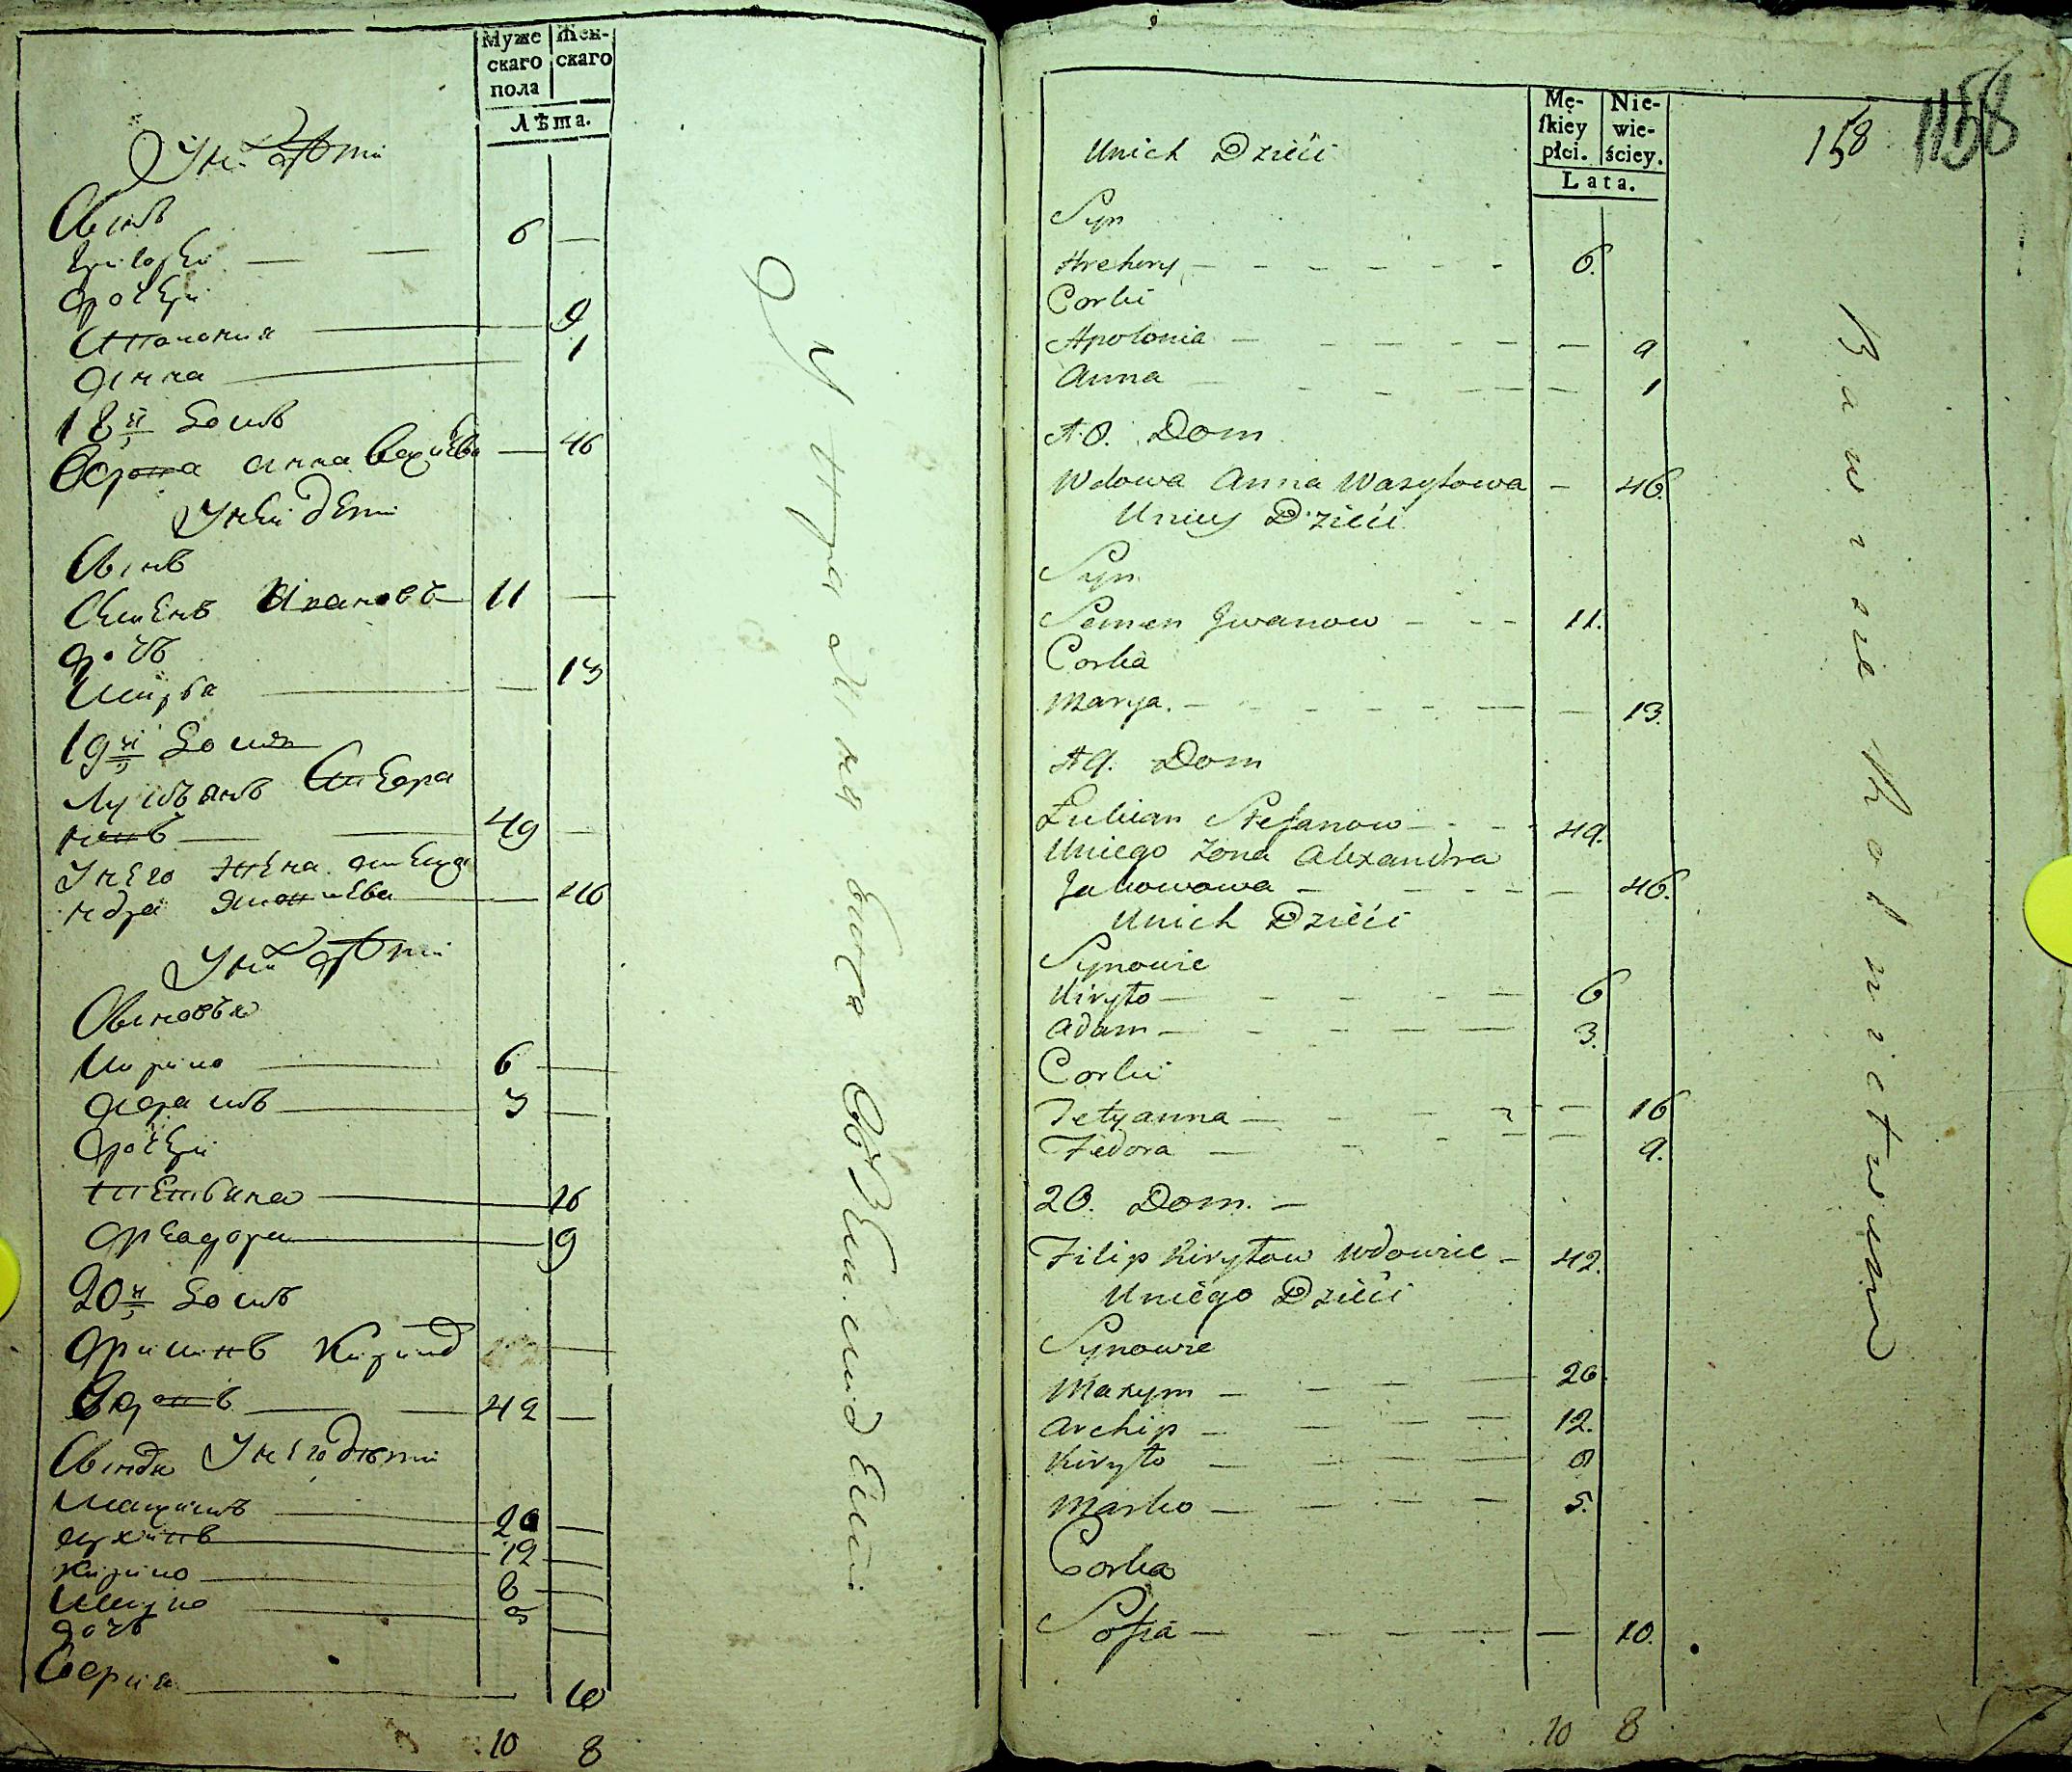 Муже
скаго
пола
Жен-
скаго
Лѣта.
У них дѣти
Сынъ
Григорей 6
Дочери
Апалония 9
Анна 1
18й Домъ
Вдова Анна Василѣва 46
У ней дети
Сынъ
Семенъ Ивановъ 11
Дочь
Марья 13
19й Домъ
Лукьянъ Стефа
новъ 49
У него жена Алекса
ндра 46
У них дѣти
Сыновья
Кирило 6
Адамъ 3
Дочери
Тетьяна 16
Феадора 9
20й Домъ
Филипъ Кирилов
Вдовъ 42
Сыновья У него дѣти
Максимъ 20
Архипъ 12
Кирило 8
Марко 5
дочь
София 10
10 8
Mę-
ſkiey
płci.
Nie-
wie-
ściey.
Lata.
158
1158
Unich Dzieći
Syn
Hrehory 6.
Corki
Apolonia 9
Anna 1
18. Dom
Wdowa Anna Wasylowa 46.
Uniey Dzieći
Syn
Semen Jwanow 11.
Corka
Marya. 13.
19. Dom
Łukian Stefanow 49.
Uniego Zona Alexandra
Jakowowa 46.
Unich Dzieći
Synowie
Kiryło 6
Adam 3.
Corki
Tetyanna 16
Fedora 9.
20. Dom.
Filip Kiryłow Wdowiec 42.
Uniego Dzieći
Synowie
Maxym 20.
Archip 12.
Kiryło 8
Marko 5.
Corka
Sofia 10.
10 8